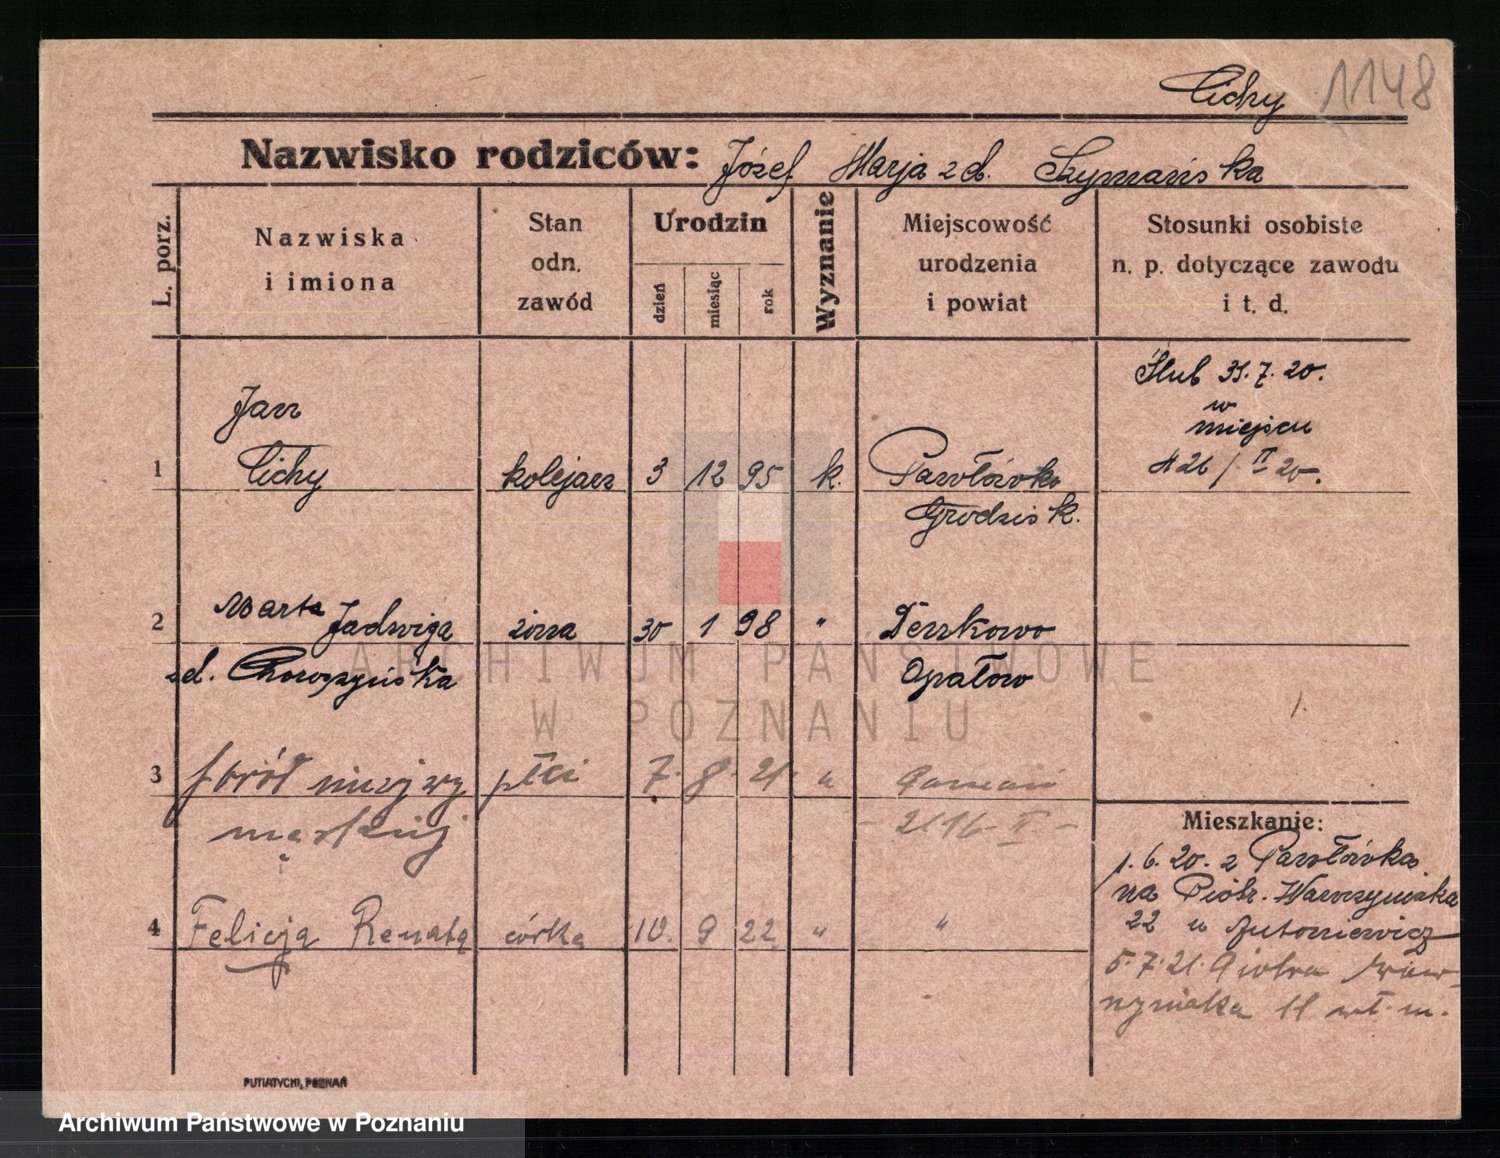 Cichy 1148
Nazwisko rodziców: Józef Marja zd. Szymańska
L. porz.
Nazwiska
i imiona
Stan
odn.
zawód
Urodzin
dzień
miesiąc
rok
Wyznanie
Miejscowość
urodzenia
i powiat
Stosunki osobiste
n. p. dotyczące zawodu
i t. d.
Ślub 31.7.20.
w
miejscu
№ 26 / II 20.
Jan
1 Cichy kolejarz 3 12 95 k. Pawłówko
Grodzisk.
2 Marta Jadwiga żona 30 1 98 " Denkowo
zd. Chowzyńska Opatów
ARCHIWUM PAŃSTWOWE
W POZNANIU
3 poród nieżywy płci 7. 8. 21. " Poznań
męskiej - 2116 - II -
4 Felicja Renata córka 10. 9 22 " "
Mieszkanie:
1.6.20. z Pawłówka
na Piotr. Wawrzyniaka
22 u Antoniewicz
5.7.21. Piotra Waw-
rzyniaka 11 wł. m.
PUTIATYCKI, POZNAŃ
Archiwum Państwowe w Poznaniu